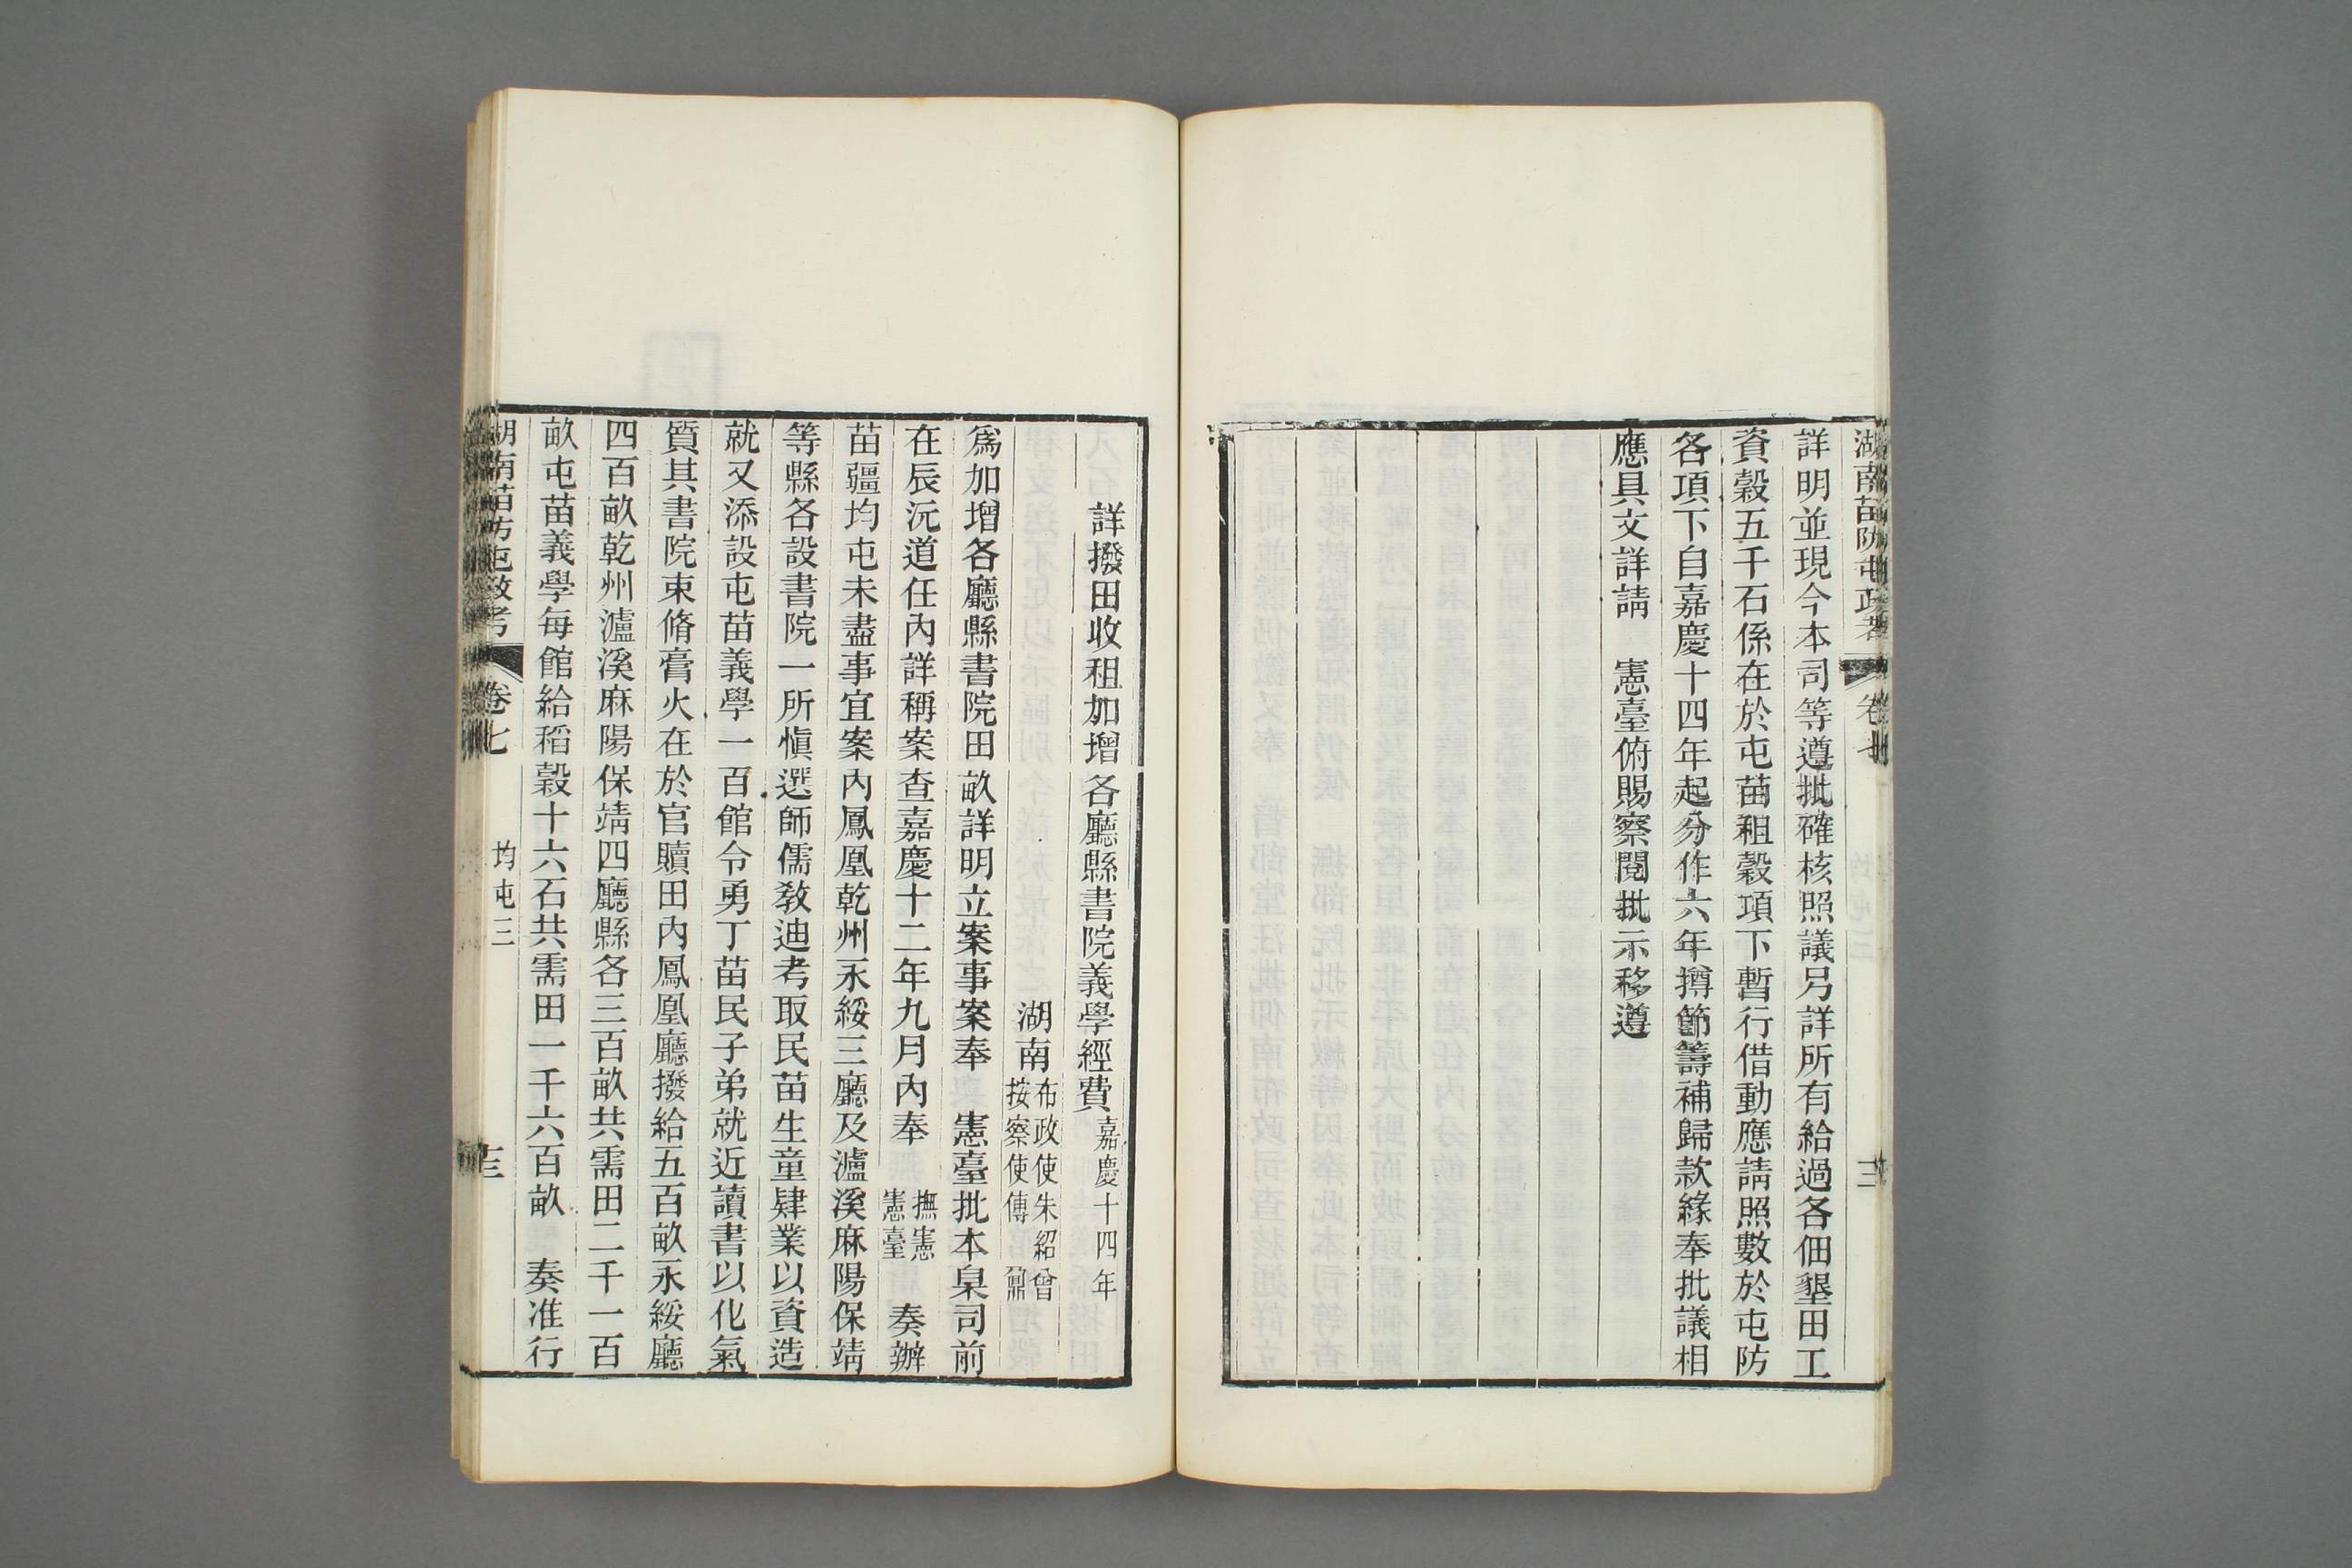 湖南苗防屯政考 卷七
詳明並現今本司等遵批確核照議另詳所有給過各佃墾田工
資穀五千石係在於屯苗租穀項下暫行借動應請照數於屯防
各項下自嘉慶十四年起分作六年撙節籌補歸款緣奉批議相
應具文詳請 憲臺俯賜察閱批示移遵
詳撥田收租加增各廳縣書院義學經費嘉慶十四年
湖南布政使朱紹曾按察使傅鼐
爲加增各廳縣書院田畝詳明立案事案奉 憲臺批本臬司前
在辰沅道任內詳稱案查嘉慶十二年九月內奉 撫憲憲臺 奏辦
苗疆均屯未盡事宜案內鳳凰乾州永綏三廳及瀘溪麻陽保靖
等縣各設書院一所愼選師儒敎迪考取民苗生童肄業以資造
就又添設屯苗義學一百館令勇丁苗民子弟就近讀書以化氣
質其書院束脩膏火在於官贖田內鳳凰廳撥給五百畝永綏廳
四百畝乾州瀘溪麻陽保靖四廳縣各三百畝共需田二千一百
畝屯苗義學每館給稻穀十六石共需田一千六百畝 奏准行
湖南苗防屯政考 卷七 均屯三